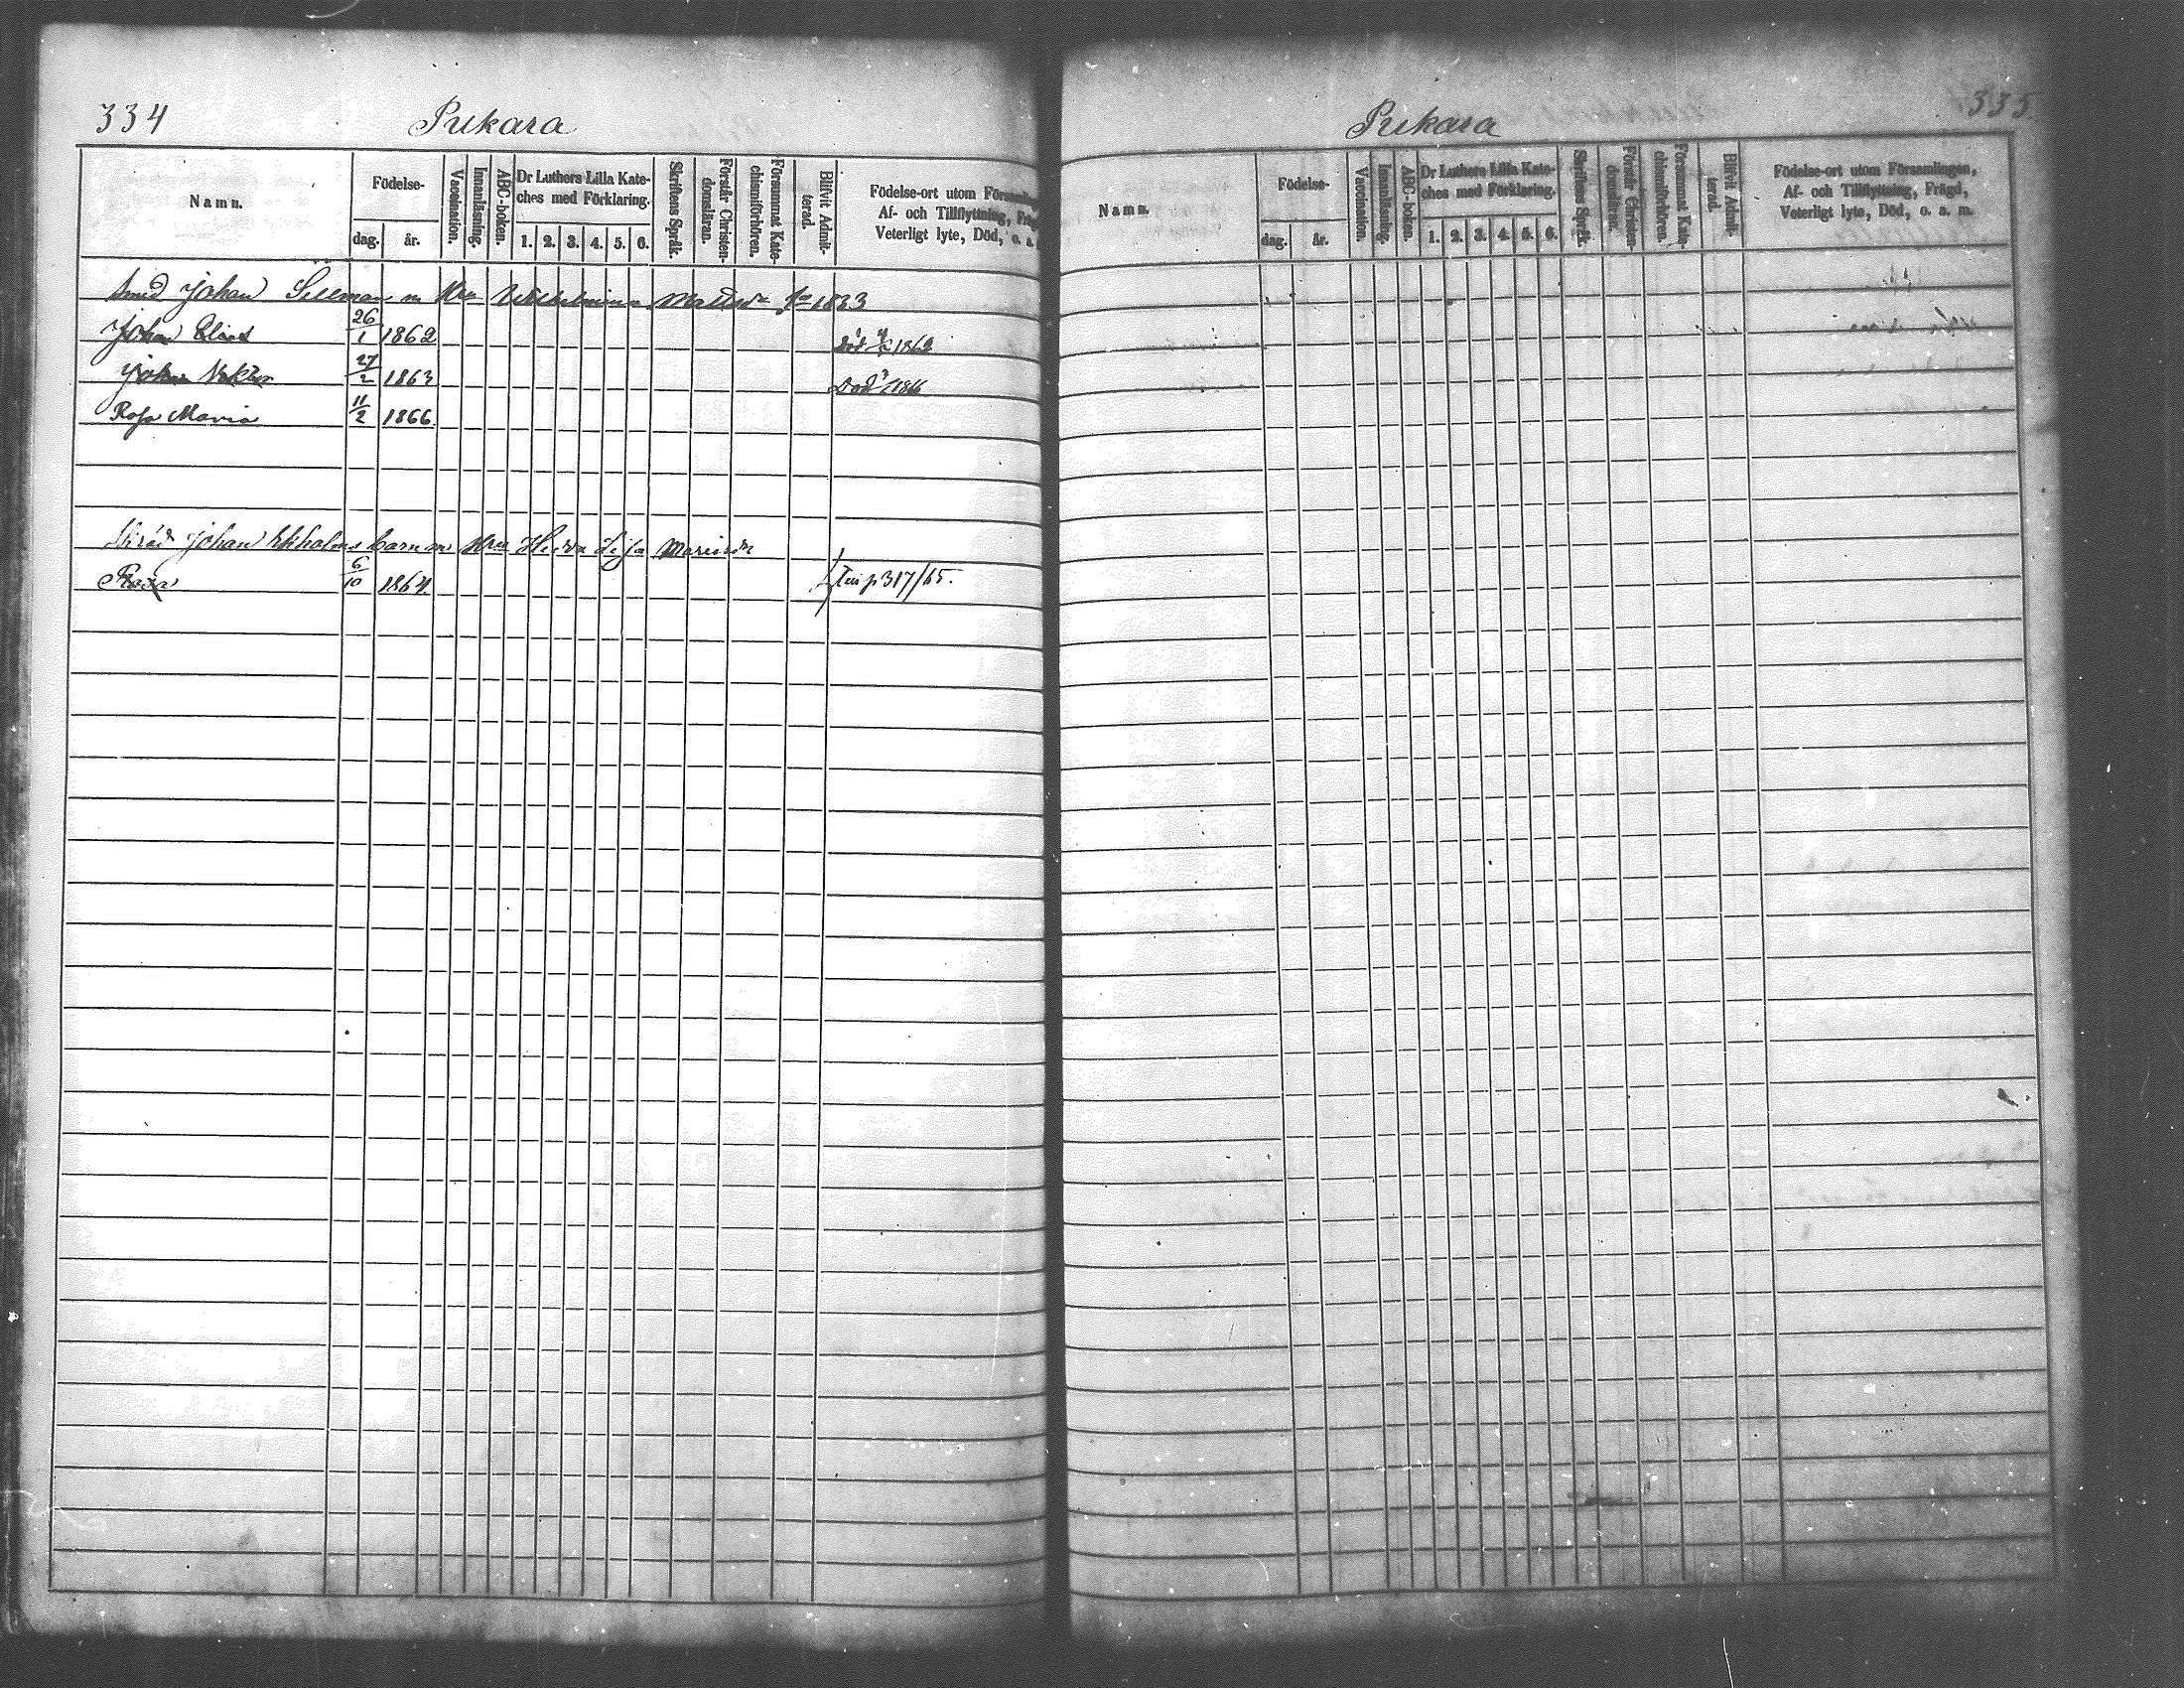 334
Pukara
Namn.
Födelse-
dag.
år.
Vaccination.
Innanläsning.
ABC-boken.
Dr Luthers Lilla Kate-
ches med Förklaring.
1. 2. 3. 4. 5. 6.
Skriftens Språk.
Förstår Christen-
domsläran.
Försummat Kate-
chismiförhören.
Blifvit Admit-
terad.
Födelse-ort utom Församlin
Af- och Tillflyttning, Fräg
Veterligt lyte, Död, o. a.
Smed Johan Sellman m Hru Wilhelmina Mattsdr fö 1833
Johan Elias 26/1 1862 Död 1862
Johan Viktor 27/2 1863 Död 1866
Rosa Maria 11/2 1866
Skräd Johan Ekholms barn m Hru Hedda Lisa
6/10 1864. p 317/65.
335.
Pukara
Namn.
Födelse-
dag.
år.
Vaccination.
Innanläsning.
ABC-boken.
Dr Luthers Lilla Kate-
ches med Förklaring.
1. 2. 3. 4. 5. 6.
Skriftens Språk.
Förstår Christen-
domsläran.
Försummat Kate-
chismiförhören.
Blifvit Admit-
terad.
Födelse-ort utom Församlingen,
Af- och Tillflyttning, Frägd,
Veterligt lyte, Död, o. a. m.